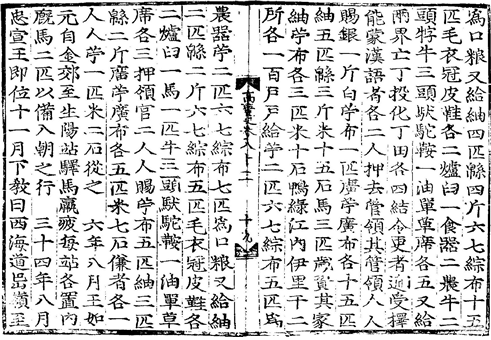 爲口粮又給紬四匹緜四斤六七綜布十五
匹毛衣冠皮鞋各二爐臼一食器二農牛二
頭牸牛三頭馱駝鞍一油單草席各五又給
兩界亡丁投化丁田各四結令更者逓受擇
能蒙漢語者各二人押去管領其管領人人
賜銀一斤白苧布一匹廣苧廣布各十五匹
紬五匹緜三斤米十五石馬三匹歲賫其家
紬苧布各三匹米十石鴨綠江內伊里干二
所各一百戶戶給苧二匹六七綜布五匹
高麗史卷八十二 十九
農器苧二匹六七綜布七匹爲口粮又給紬
二匹緜二斤六七綜布五匹毛衣冠皮鞋各
二爐臼一馬二匹牛三頭馱駝鞍一油單草
席各三押領官二人人賜苧布五匹紬三匹
緜二斤廣苧廣布各五匹米七石傔者各一
人人苧一匹米二石從之 六年八月王如
元自金郊至生陽站驛馬羸疲每站各置內
廐馬二匹以備入朝之行 三十四年八月
忠宣王卽位十一月下教曰西海道岊嶺至